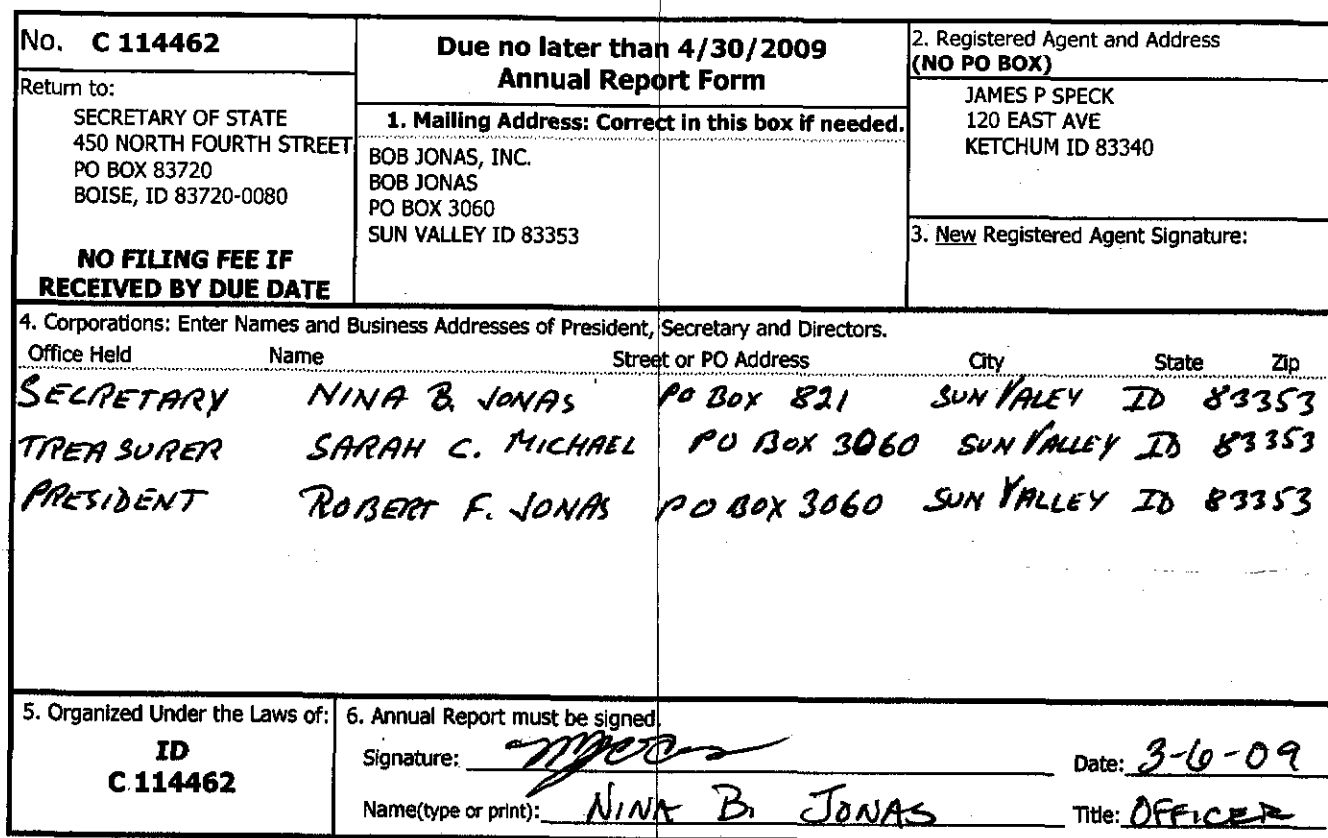 No. C 114462
Return to:
SECRETARY OF STATE
450 NORTH FOURTH STREET
PO BOX 83720
BOISE, ID 83720-0080
NO FILING FEE IF
RECEIVED BY DUE DATE
Due no later than 4/30/2009
Annual Report Form
1. Mailing Address: Correct in this box if needed.
BOB JONAS, INC.
BOB JONAS
PO BOX 3060
SUN VALLEY ID 83353
2. Registered Agent and Address
(NO PO BOX)
JAMES P SPECK
120 EAST AVE
KETCHUM ID 83340
3. New Registered Agent Signature:
4. Corporations: Enter Names and Business Addresses of President, Secretary and Directors.
Office Held Name Street or PO Address City State Zip
SECRETARY NINA B. JONAS PO BOX 821 SUN VALEY ID 83353
TREASURER SARAH C. MICHAEL PO BOX 3060 SUN VALLEY ID 83353
PRESIDENT ROBERT F. JONAS PO BOX 3060 SUN VALLEY ID 83353
5. Organized Under the Laws of:
ID
C 114462
6. Annual Report must be signed.
Signature: Date: 3-6-09
Name(type or print): NINA B. JONAS Title: OFFICER